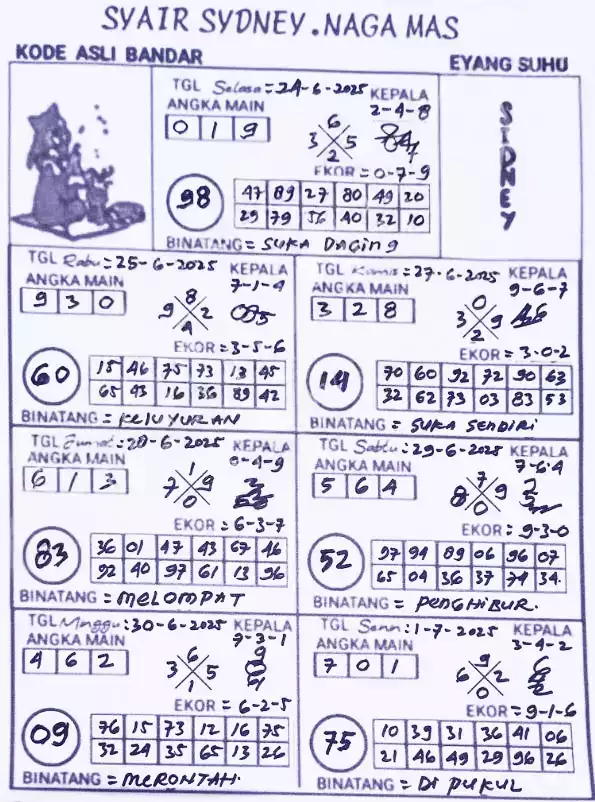 SYAIR SYDNEY.NAGA MAS
KODE ASLI BANDAR
EYANG SUHU
TGL Selasa = 24-6-2025
KEPALA
2-4-8
ANGKA MAIN
0 1 9
6
3 5
2
EKOR = 0-7-9
98
47 89 27 80 49 20
29 79 56 40 32 10
BINATANG = SUKA DAGING
SIDNEY
TGL Rabu = 25-6-2025
KEPALA
7-1-4
ANGKA MAIN
9 3 0
8
9 2
4
EKOR = 3-5-6
60
15 46 75 73 13 45
65 43 16 36 89 42
BINATANG = KELUYURAN
TGL Kamis = 27-6-2025
KEPALA
9-6-7
ANGKA MAIN
3 2 8
0
3 9
2
EKOR = 3-0-2
14
70 60 92 72 90 63
32 62 73 03 83 53
BINATANG = SUKA SENDIRI
TGL Jumat : 28-6-2025
KEPALA
8-4-9
ANGKA MAIN
6 1 3
1
7 9
0
EKOR = 6-3-7
83
36 01 47 43 67 46
92 40 97 61 13 96
BINATANG = MELOMPAT
TGL Sabtu : 29-6-2025
KEPALA
7-6-4
ANGKA MAIN
5 6 4
7
8 9
0
EKOR : 9-3-0
52
97 94 89 06 96 07
65 04 36 37 74 34
BINATANG = PENGHIBUR.
TGL Minggu : 30-6-2025
KEPALA
7-3-1
ANGKA MAIN
4 6 2
6
3 5
1
EKOR = 6-2-5
09
76 15 73 12 16 75
32 24 35 65 13 26
BINATANG = MERONTAH.
TGL Senin : 1-7-2025
KEPALA
3-4-2
ANGKA MAIN
7 0 1
9
6 2
0
EKOR = 9-1-6
75
10 39 31 36 41 06
21 46 49 29 96 26
BINATANG = DI PUKUL